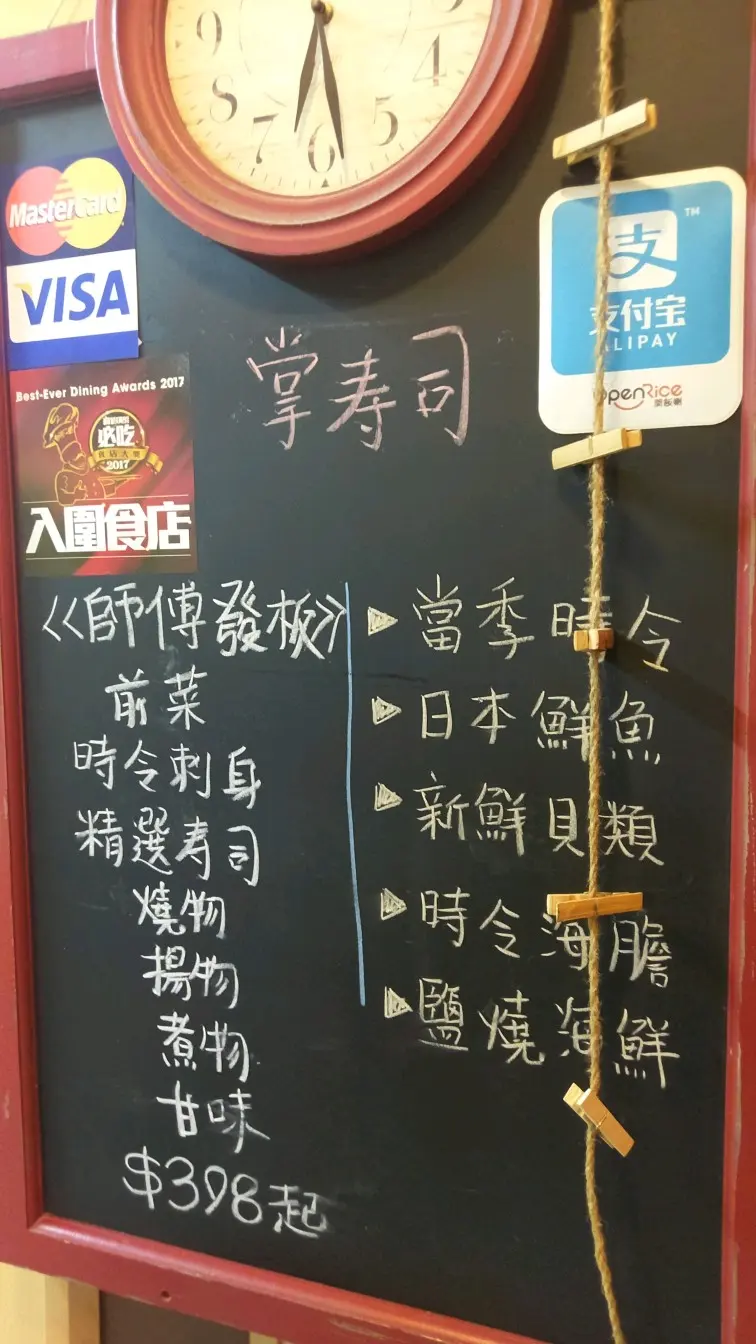 9
8
7
6
5
4
MasterCard
VISA
Best-Ever Dining Awards 2017
必吃
2017
入圍食店
支
TM
支付宝
ALIPAY
OpenRice
開飯喇
掌寿司
《師傅發板》
前菜
時令刺身
精選寿司
燒物
揚物
煮物
甘味
$398起
▶當季時令
▶日本鮮魚
▶新鮮貝類
▶時令海膽
▶鹽燒海鮮